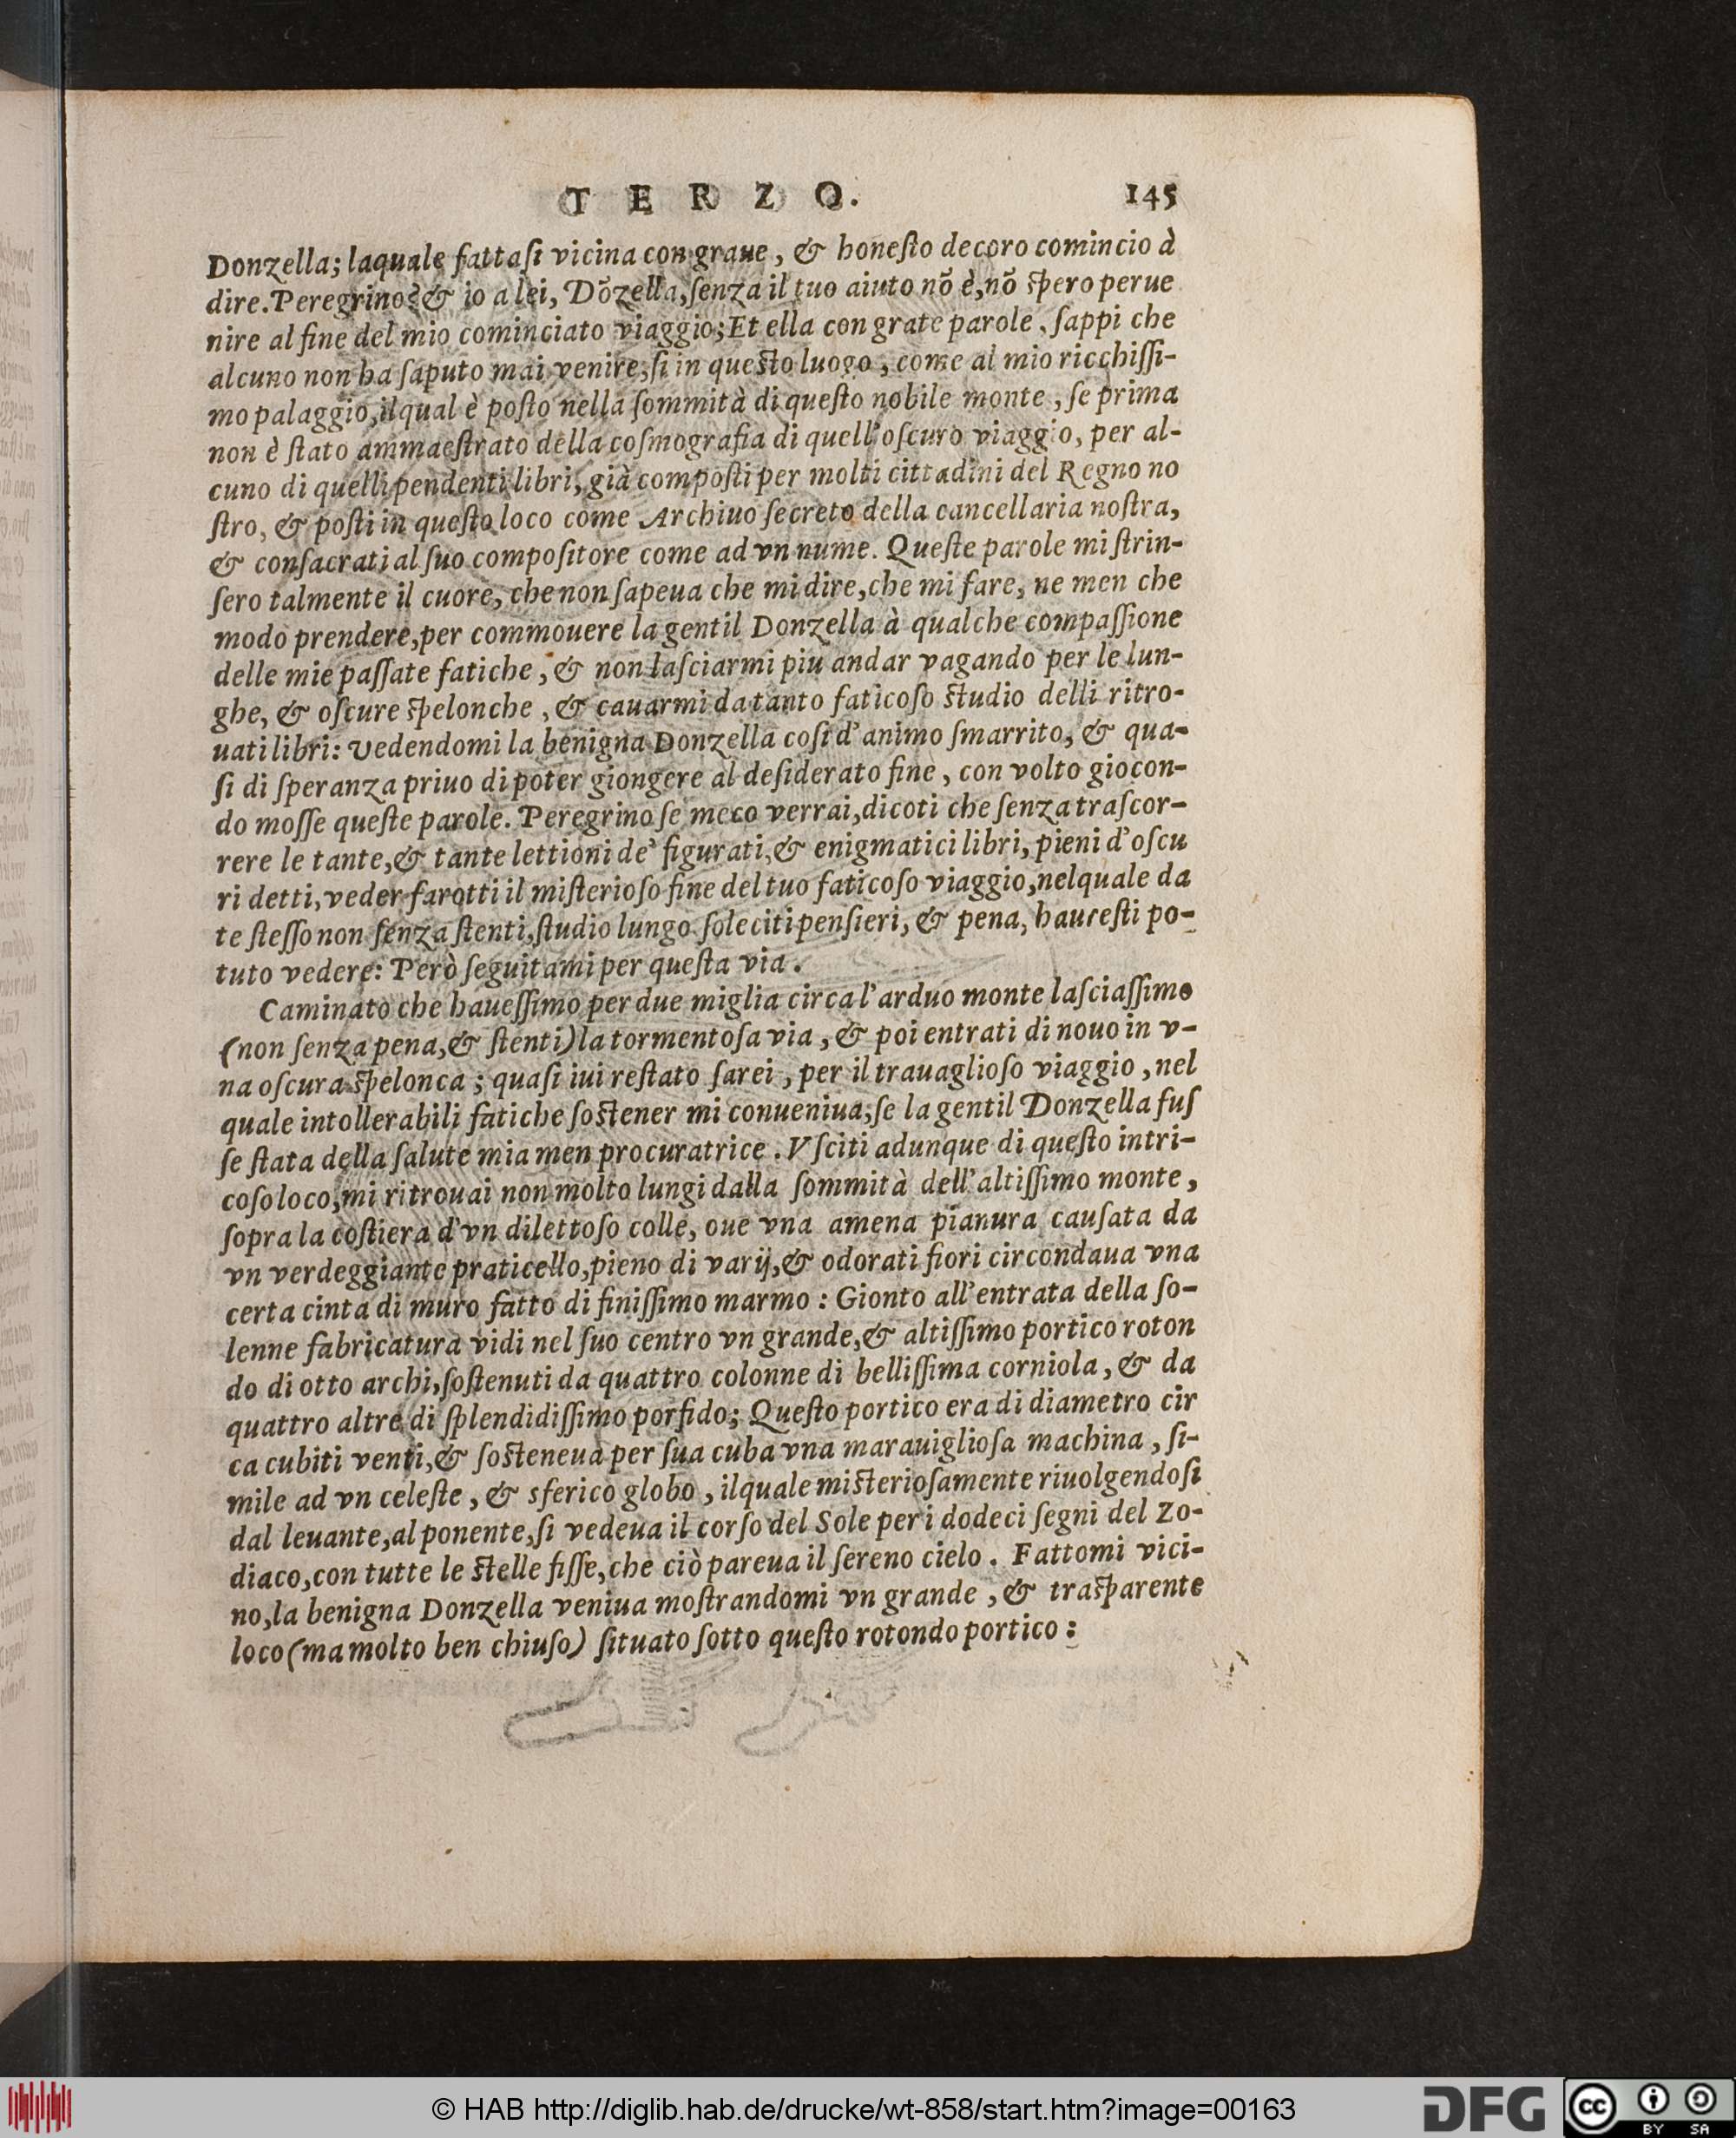 T E R Z O. 145
Donzella; laquale fattasi vicina con graue, & honesto decoro comincio à
dire. Peregrino? & io a lei, Dõzella, senza il tuo aiuto nõ è, nõ spero perue
nire al fine del mio cominciato viaggio; Et ella con grate parole. sappi che
alcuno non ha saputo mai venire, si in questo luogo, come al mio ricchissi-
mo palaggio, ilqual è posto nella sommità di questo nobile monte, se prima
non è stato ammaestrato della cosmografia di quell'oscuro viaggio, per al-
cuno di quelli pendenti libri, già composti per molti cittadini del Regno no
stro, & posti in questo loco come Archiuo secreto della cancellaria nostra,
& consacrati al suo compositore come ad vn nume. Queste parole mi strin-
sero talmente il cuore, che non sapeua che mi dire, che mi fare, ne men che
modo prendere, per commouere la gentil Donzella à qualche compassione
delle mie passate fatiche, & non lasciarmi piu andar vagando per le lun-
ghe, & oscure spelonche, & cauarmi da tanto faticoso studio delli ritro-
uati libri: vedendomi la benigna Donzella cosi d'animo smarrito, & qua-
si di speranza priuo di poter giongere al desiderato fine, con volto giocon-
do mosse queste parole. Peregrino se meco verrai, dicoti che senza trascor-
rere le tante, & tante lettioni de' figurati, & enigmatici libri, pieni d'oscu
ri detti, veder farotti il misterioso fine del tuo faticoso viaggio, nelquale da
te stesso non senza stenti, studio lungo soleciti pensieri, & pena, hauresti po-
tuto vedere: Però seguitami per questa via.
Caminato che hauessimo per due miglia circa l'arduo monte lasciassimo
(non senza pena, & stenti) la tormentosa via, & poi entrati di nouo in v-
na oscura spelonca; quasi iui restato sarei, per il trauaglioso viaggio, nel
quale intollerabili fatiche sostener mi conueniua, se la gentil Donzella fus
se stata della salute mia men procuratrice. Vsciti adunque di questo intri-
coso loco, mi ritrouai non molto lungi dalla sommità dell'altissimo monte,
sopra la costiera d'vn dilettoso colle, oue vna amena pianura causata da
vn verdeggiante praticello, pieno di varij, & odorati fiori circondaua vna
certa cinta di muro fatto di finissimo marmo: Gionto all'entrata della so-
lenne fabricatura vidi nel suo centro vn grande, & altissimo portico roton
do di otto archi, sostenuti da quattro colonne di bellissima corniola, & da
quattro altre di splendidissimo porfido; Questo portico era di diametro cir
ca cubiti venti, & sosteneua per sua cuba vna marauigliosa machina, si-
mile ad vn celeste, & sferico globo, ilquale misteriosamente riuolgendosi
dal leuante, al ponente, si vedeua il corso del Sole per i dodeci segni del Zo-
diaco, con tutte le stelle fisse, che ciò pareua il sereno cielo. Fattomi vici-
no, la benigna Donzella veniua mostrandomi vn grande, & trasparente
loco (ma molto ben chiuso) situato sotto questo rotondo portico:
© HAB http://diglib.hab.de/drucke/wt-858/start.htm?image=00163
DFG
cc BY SA